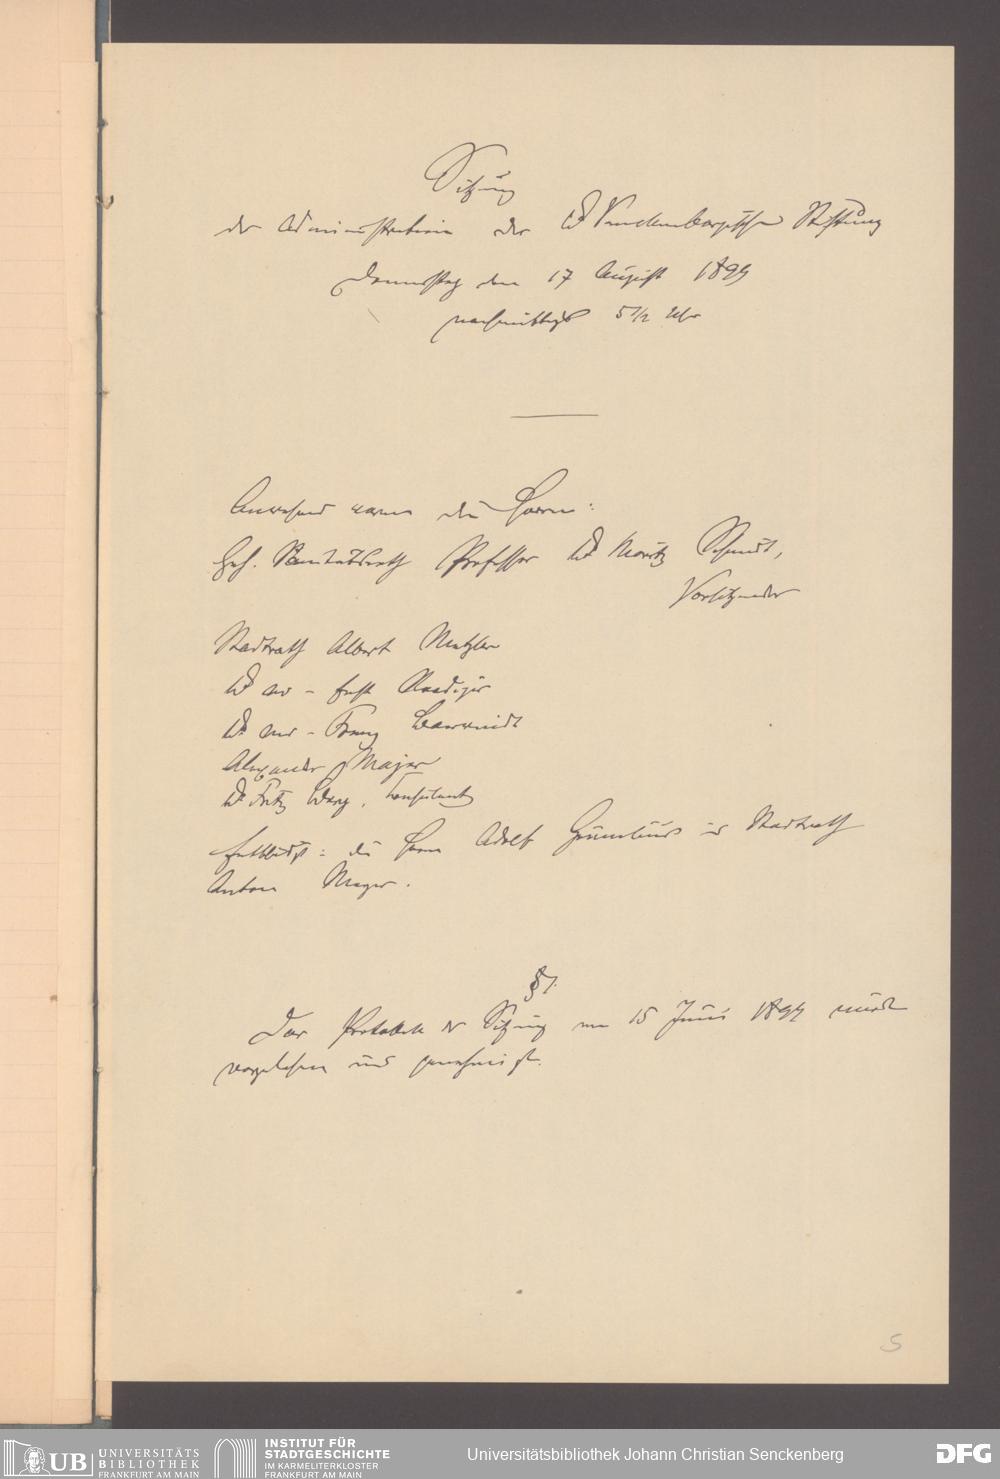 Sitzung
der Administration der Dr Senckenbergischen Stiftung
Donnerstag den 17 August 1899
nachmittags 5 1/2 Uhr
Anwesend waren die Herren:
Geh. Sanitätsrath Professor Dr Moritz Schmidt,
Vorsitzender
Stadtrath Albert Metzler
Dr med Ernst Roediger
Dr med Franz
Alexander Majer
Dr Fritz Berg, Consulent
Entschuldigt: die Herren Adolf Grunelius und Stadtrath
Anton Meyer.
§ 1.
Das Protokoll der Sitzung vom 15 Juni 1899 wurde
vorgelesen und genehmigt.
5
UB UNIVERSITÄTS
BIBLIOTHEK
FRANKFURT AM MAIN
INSTITUT FÜR
STADTGESCHICHTE
IM KARMELITERKLOSTER
FRANKFURT AM MAIN
Universitätsbibliothek Johann Christian Senckenberg
DFG